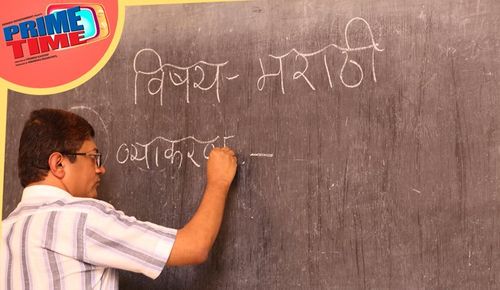 PRIME
TIME
विषय - मराठी
व्याकरण -